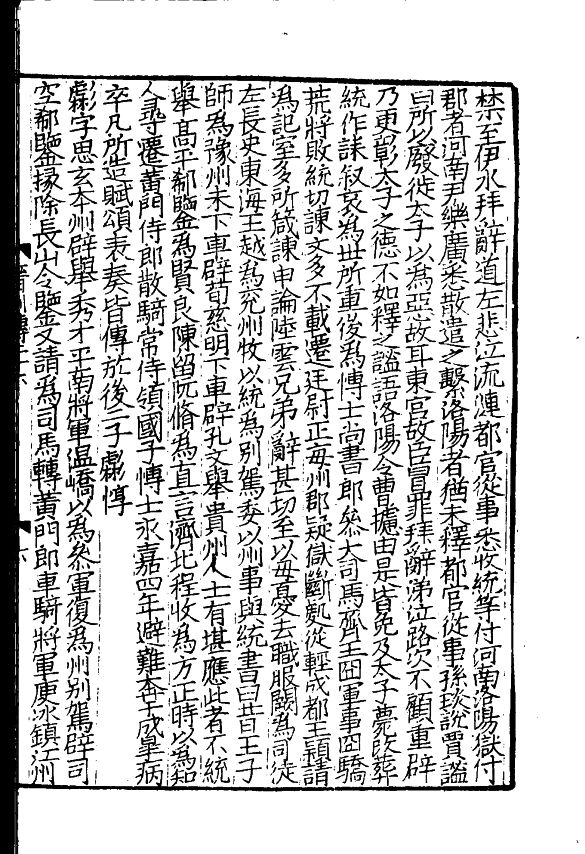 禁至伊水拜辭道左悲泣流漣都官從事悉收統等付河南洛陽獄付
郡者河南尹樂廣悉散遣之繫洛陽者猶未釋都官從事孫琰說賈謐
曰所以廢徙太子以爲惡故耳東宮故臣冒罪拜辭涕泣路次不顧重辟
乃更彰太子之德不如釋之謐語洛陽令曹攄由是皆免及太子薨改葬
統作誄叙哀爲世所重後爲博士尚書郎參大司馬齊王冏軍事冏驕
荒將敗統切諫文多不載遷廷尉正每州郡疑獄斷處從輕成都王穎請
爲記室多所箴諫申論陸雲兄弟辭甚切至以母憂去職服闋爲司徒
左長史東海王越爲兗州牧以統爲別駕委以州事與統書曰昔王子
師爲豫州未下車辟荀慈明下車辟孔文舉貴州人士有堪應此者不統
舉高平郗鑒爲賢良陳留阮脩爲直言濟北程收爲方正時以爲知
人尋遷黃門侍郎散騎常侍領國子博士永嘉四年避難奔于成皐病
卒凡所造賦頌表奏皆傳於後二子虨惇
虨字思玄本州辟舉秀才平南將軍温嶠以爲參軍復爲州別駕辟司
空郗鑒掾除長山令鑒又請爲司馬轉黃門郎車騎將軍庾冰鎮江州